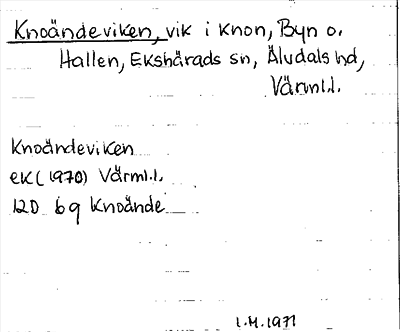 Knoändeviken, vik i Knon, Byn o.
Hallen, Ekshärads sn, Älvdals hd,
Värml.l.
Knoändeviken
eK (1970) Värml.l.
12D 6g Knoände
1.4.1971